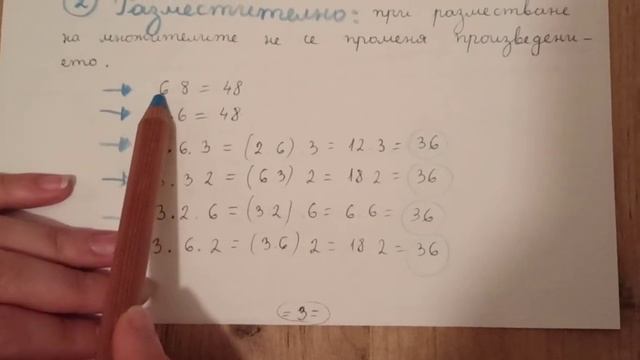 2 Разместително: при разместване
на множителите не се променя произведени-
ето.
6 8 = 48
. 6 = 48
. 6. 3 = (2 6) 3 = 12 . 3 = 36
. 3 2 = (6 3) 2 = 18 2 = 36
3. 2. 6 = (3 2) . 6 = 6 . 6 = 36
3. 6. 2 = (3.6) 2 = 18 2 = 36
= 3 =